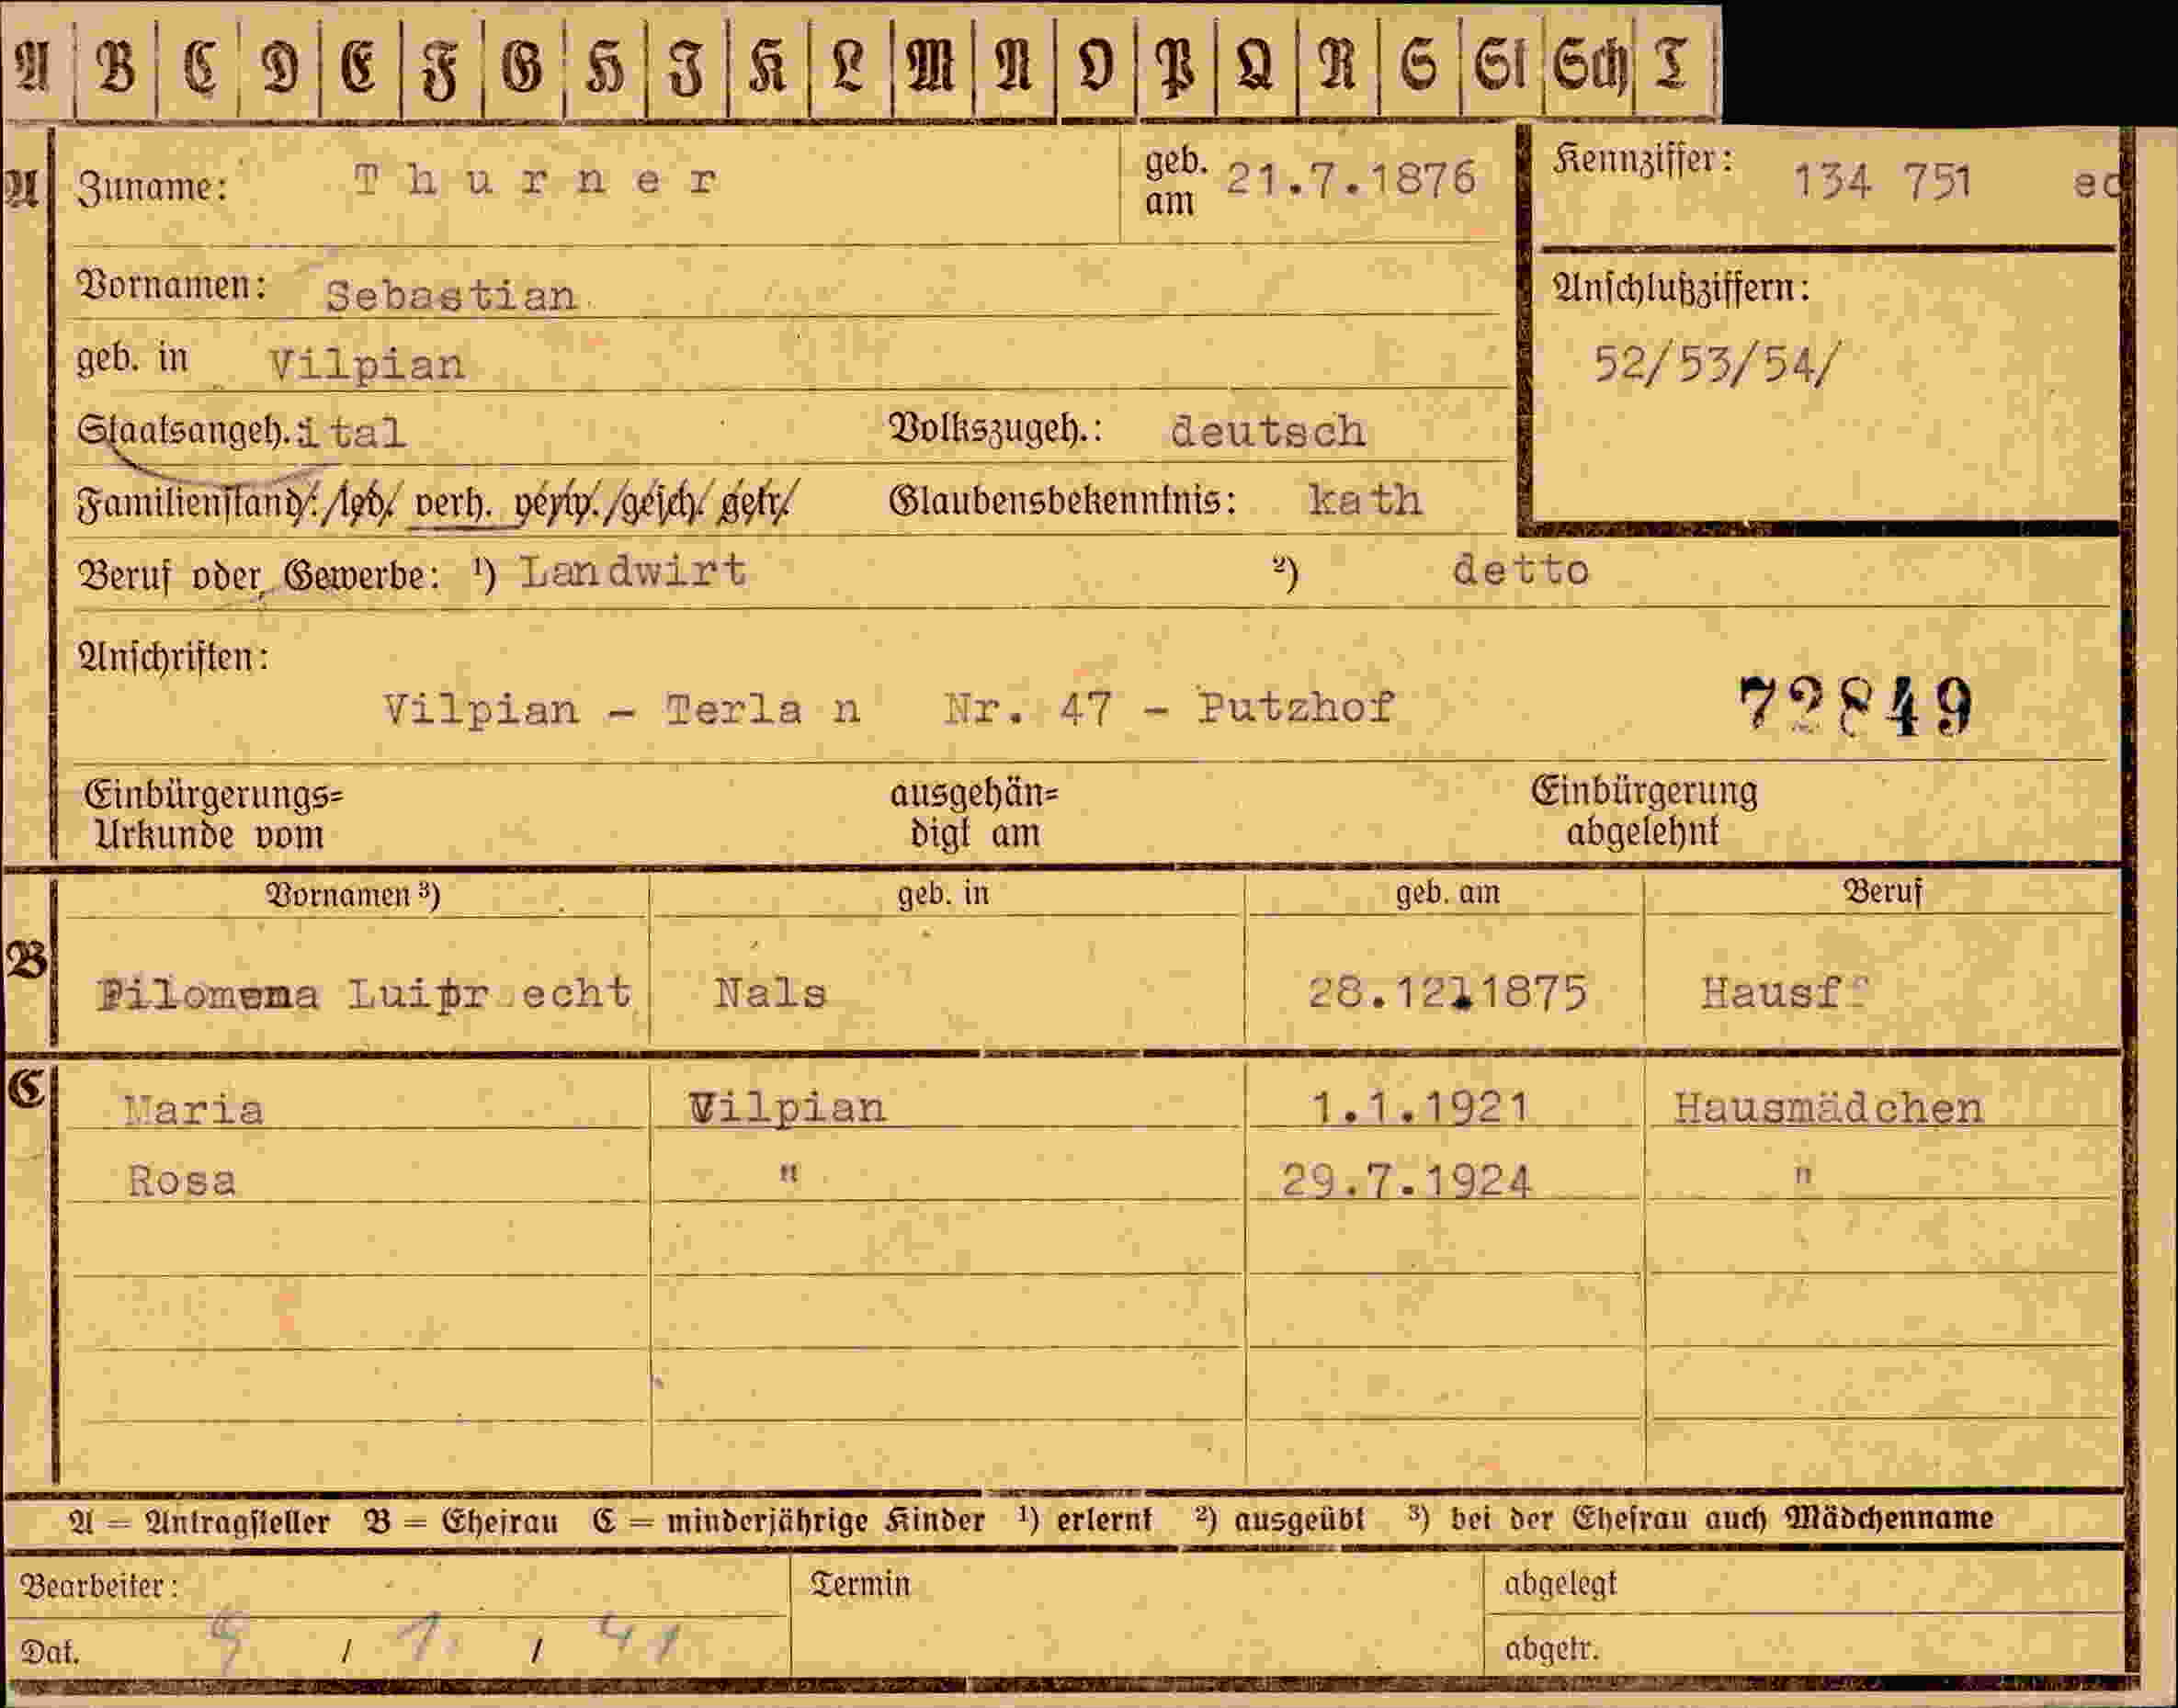 A B C D E F G H I K L M N O P Q R S St Sch T
A Zuname: Thurner geb. am 21.7.1876 Kennziffer: 134 751
Vornamen: Sebastian
Anschlußziffern:
geb. in Vilpian 52/53/54/
Staatsangeh. ital Volkszugeh.: deutsch
Familienstand: led. verh. verw. gesch. getr. Glaubensbekenntnis: kath
Beruf oder Gewerbe: ¹) Landwirt ²) detto
Anschriften:
Vilpian - Terla n Nr. 47 - Putzhof 72849
Einbürgerungs= ausgehän= Einbürgerung
Urkunde vom digt am abgelehnt
Vornamen ³) geb. in geb. am Beruf
B Filomena Luipr echt Nals 28.12.1875 Hausf
C Maria Vilpian 1.1.1921 Hausmädchen
Rosa " 29.7.1924 "
A = Antragsteller B = Ehefrau C = minderjährige Kinder ¹) erlernt ²) ausgeübt ³) bei der Ehefrau auch Mädchenname
Bearbeiter: Termin abgelegt
Dat. 9 / 1. / 41 abgetr.